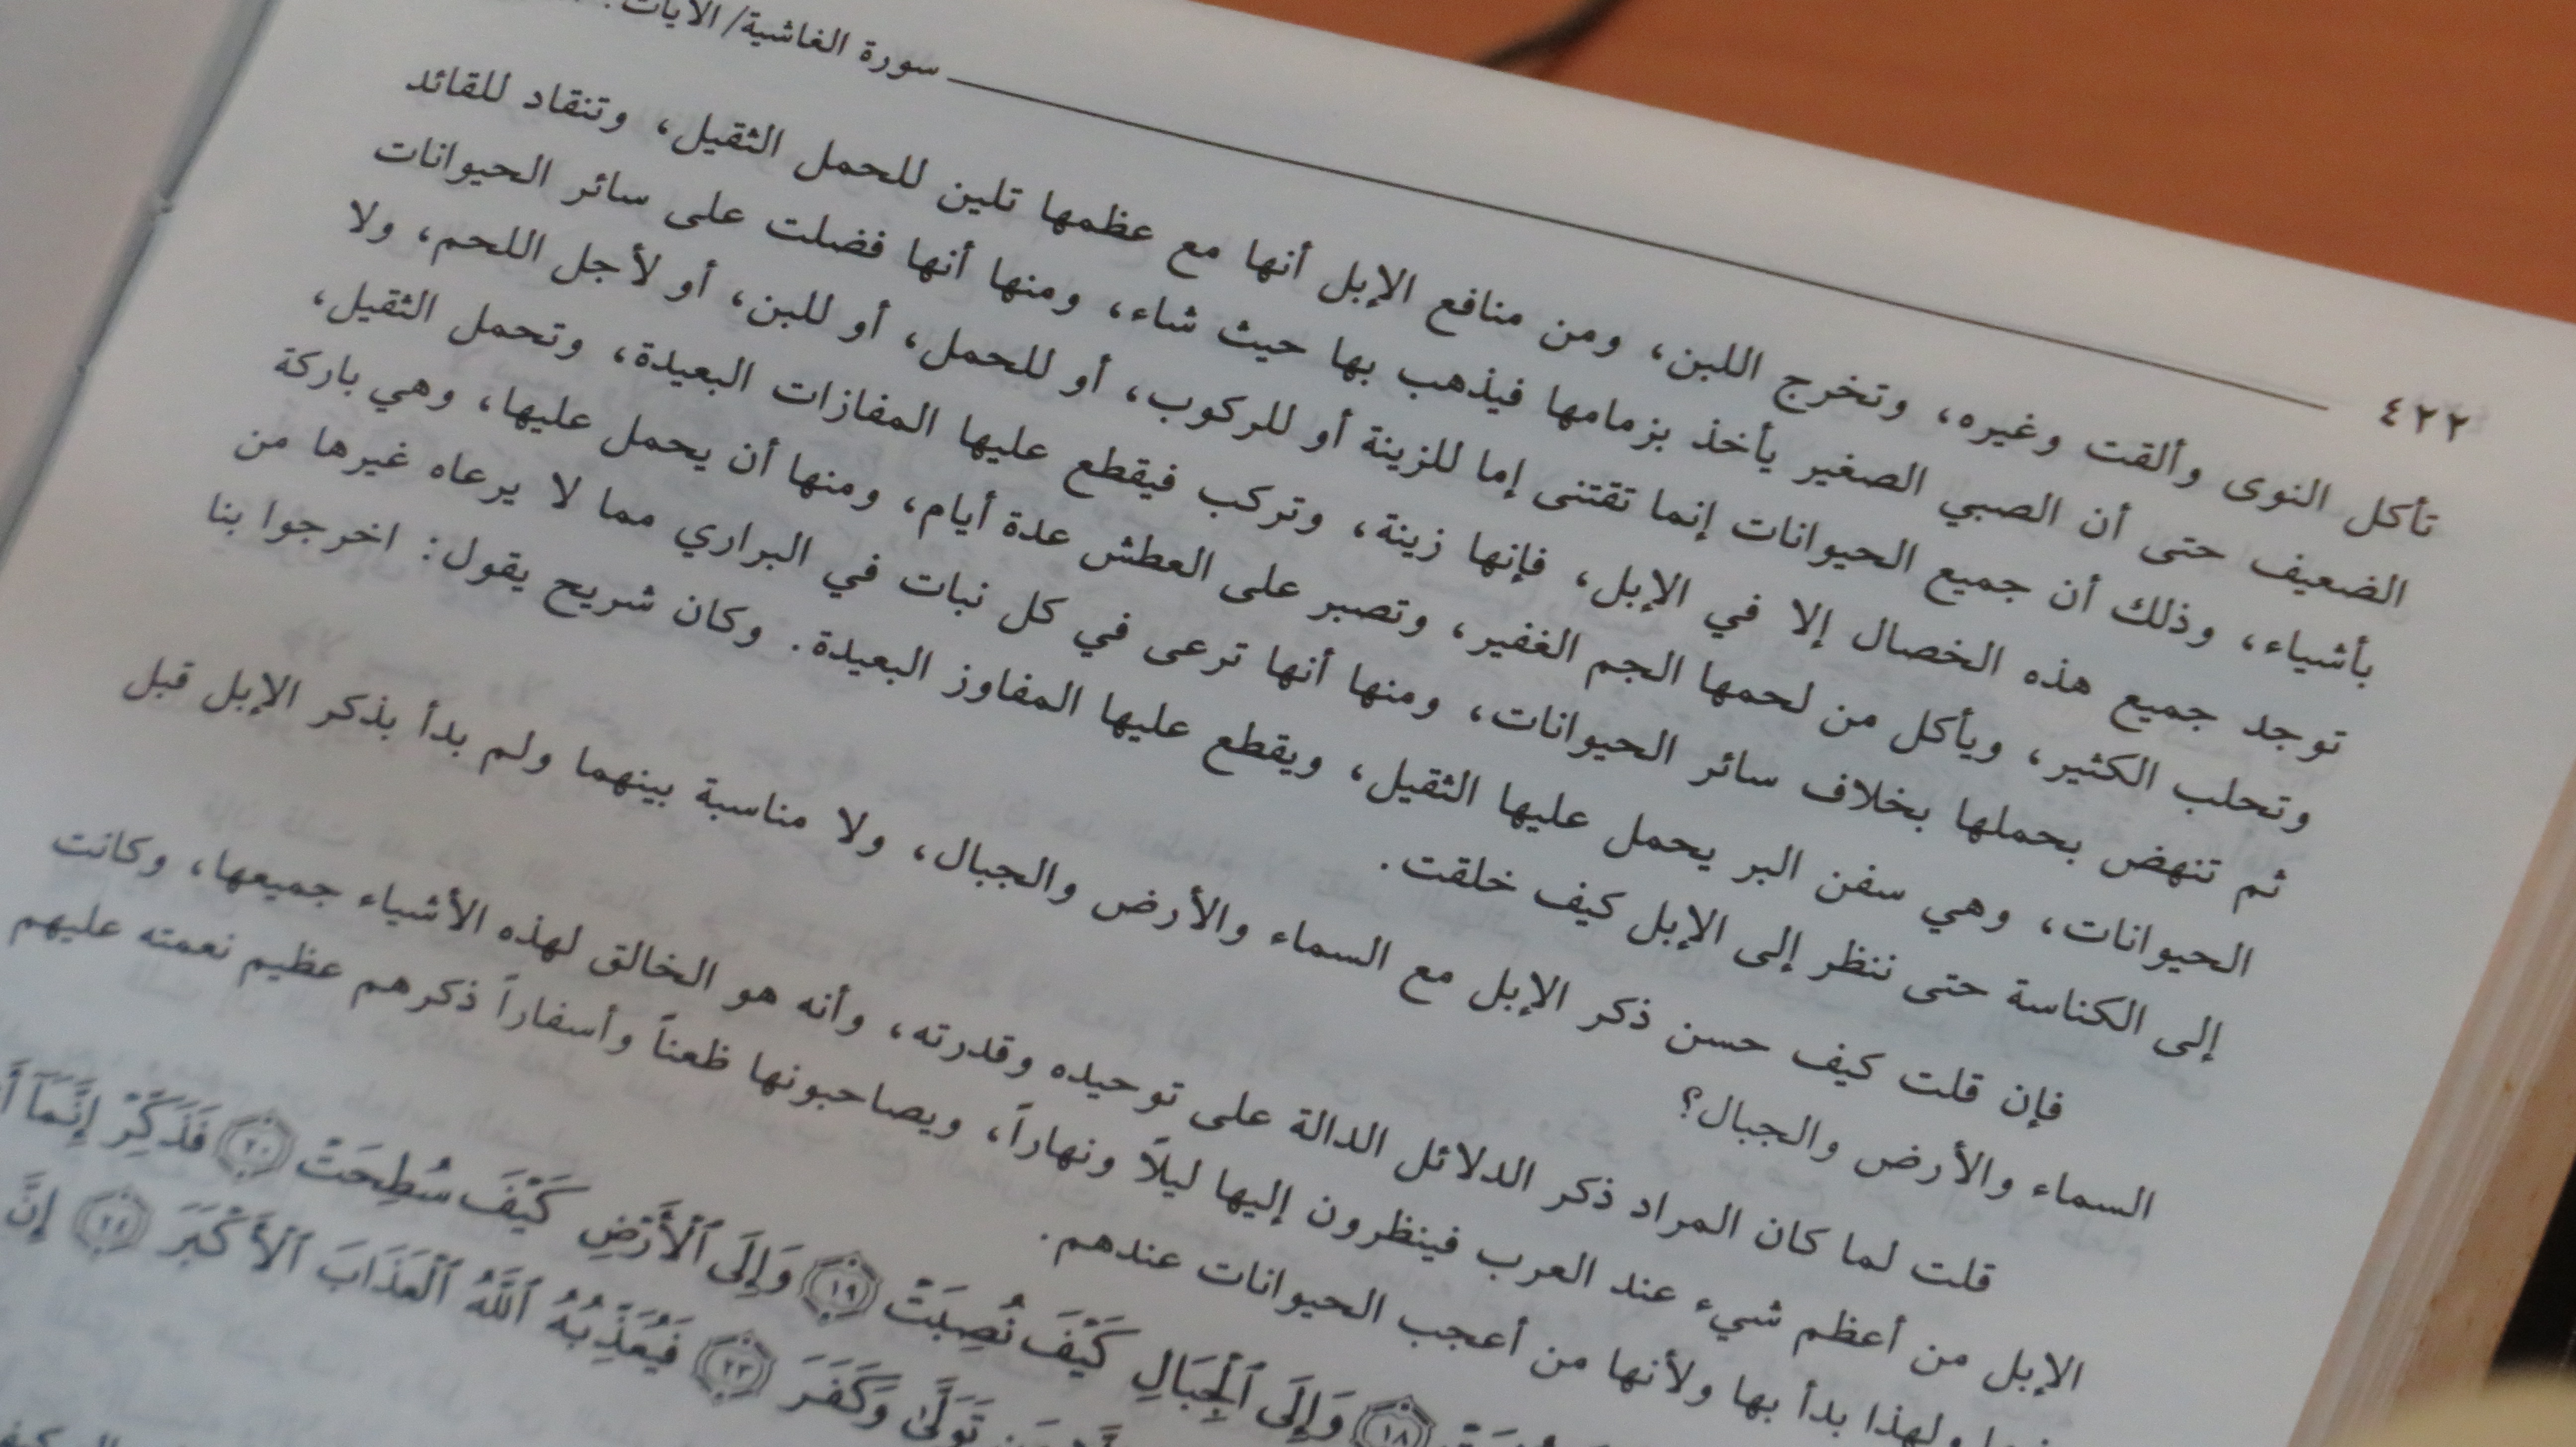 ٤٢٢ سورة الغاشية/ الآيات:
تأكل النوى وألقت وغيره، وتخرج اللبن، ومن منافع الإبل أنها مع عظمها تلين للحمل الثقيل، وتنقاد للقائد
الضعيف حتى أن الصبي الصغير يأخذ بزمامها فيذهب بها حيث شاء، ومنها أنها فضلت على سائر الحيوانات
بأشياء، وذلك أن جميع الحيوانات إنما تقتنى إما للزينة أو للركوب، أو للحمل، أو للبن، أو لأجل اللحم، ولا
توجد جميع هذه الخصال إلا في الإبل، فإنها زينة، وتركب فيقطع عليها المفازات البعيدة، وتحمل الثقيل،
وتحلب الكثير، ويأكل من لحمها الجم الغفير، وتصبر على العطش عدة أيام، ومنها أن يحمل عليها، وهي باركة
ثم تنهض بحملها بخلاف سائر الحيوانات، ومنها أنها ترعى في كل نبات في البراري مما لا يرعاه غيرها من
الحيوانات، وهي سفن البر يحمل عليها الثقيل، ويقطع عليها المفاوز البعيدة. وكان شريح يقول: اخرجوا بنا
إلى الكناسة حتى ننظر إلى الإبل كيف خلقت.
فإن قلت كيف حسن ذكر الإبل مع السماء والأرض والجبال، ولا مناسبة بينهما ولم بدأ بذكر الإبل قبل
السماء والأرض والجبال؟
قلت لما كان المراد ذكر الدلائل الدالة على توحيده وقدرته، وأنه هو الخالق لهذه الأشياء جميعها، وكانت
الإبل من أعظم شيء عند العرب فينظرون إليها ليلاً ونهاراً، ويصاحبونها ظعناً وأسفاراً ذكرهم عظيم نعمته عليهم
ولهذا بدأ بها ولأنها من أعجب الحيوانات عندهم.
١٨ وَإِلَى ٱلْجِبَالِ كَيْفَ نُصِبَتْ ١٩ وَإِلَى ٱلْأَرْضِ كَيْفَ سُطِحَتْ ٢٠ فَذَكِّرْ إِنَّمَآ
تَوَلَّىٰ وَكَفَرَ ٢٣ فَيُعَذِّبُهُ ٱللَّهُ ٱلْعَذَابَ ٱلْأَكْبَرَ ٢٤ إِنَّ